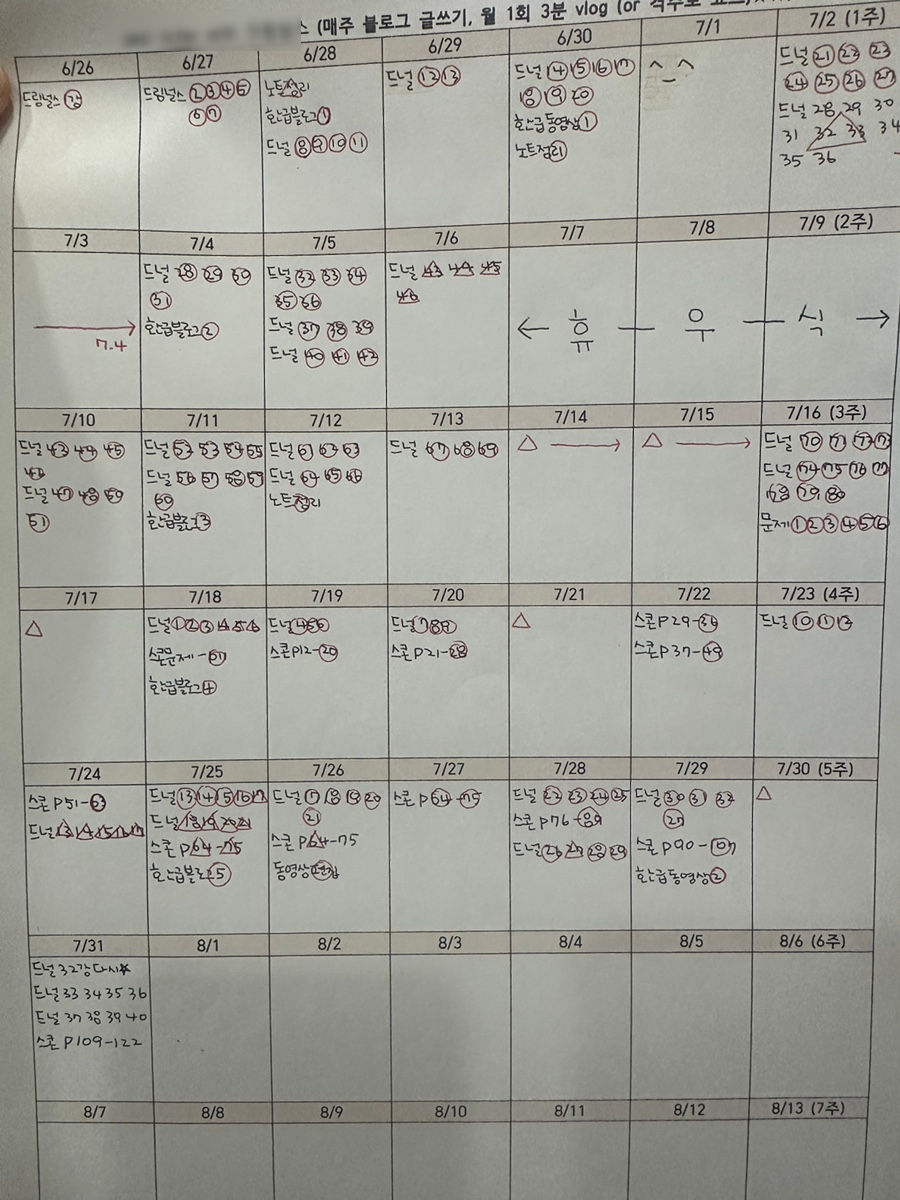 스 (매주 블로그 글쓰기, 월 1회 3분 vlog (or
6/26 6/27 6/28 6/29 6/30 7/1 7/2 (1주)
드림널스
드림널스 2 3 4 5
6 7
노트정리
한급블로그 1
드널 8 9 10 11
드널 12 13
드널 14 15 16 17
18 19 20
한급동영상 1
노트정리
^_^
드널 21 22 23
24 25 26 27
드널 28 29 30
31 32 33 34
35 36
7/3 7/4 7/5 7/6 7/7 7/8 7/9 (2주)
7.4
드널 28 29 30
31
한급블로그 2
드널 32 33 34
35 36
드널 37 38 39
드널 40 41 42
드널 43 44 45
46
← 휴 — 우 — 식 →
7/10 7/11 7/12 7/13 7/14 7/15 7/16 (3주)
드널 43 44 45
46
드널 47 48
51
드널 53 54 55
드널 56 57 58 59
60
한급블로그 3
드널 61 63
드널 64 65 66
노트정리
드널 67 68 69
△ →
△ →
드널 70 71
드널 74 75 76 77
78 79 80
문제 1 2 3 4 5 6
7/17 7/18 7/19 7/20 7/21 7/22 7/23 (4주)
△
드널 1 2 3 4 5 6
스콘문제 -
한급블로그 4
드널 4 5 6
스콘 P12-20
드널 7 8 9
스콘 P21-28
△
스콘 P29-36
스콘 P37-49
드널 10 11 12
7/24 7/25 7/26 7/27 7/28 7/29 7/30 (5주)
스콘 P51-63
드널 13 14 15 16 17
드널 13 14 15 16 17
드널 18 19 20 21
스콘 P64-75
한급블로그 5
드널 17 18 19 20
21
스콘 P64-75
동영상편집
스콘 P64-75
드널 22 23 24 25
스콘 P76-89
드널 26 27 28 29
드널 30 31 32
27
스콘 P90-107
한급동영상 2
△
7/31 8/1 8/2 8/3 8/4 8/5 8/6 (6주)
드널 32강 다시★
드널 33 34 35 36
드널 37 38 39 40
스콘 P109-122
8/7 8/8 8/9 8/10 8/11 8/12 8/13 (7주)